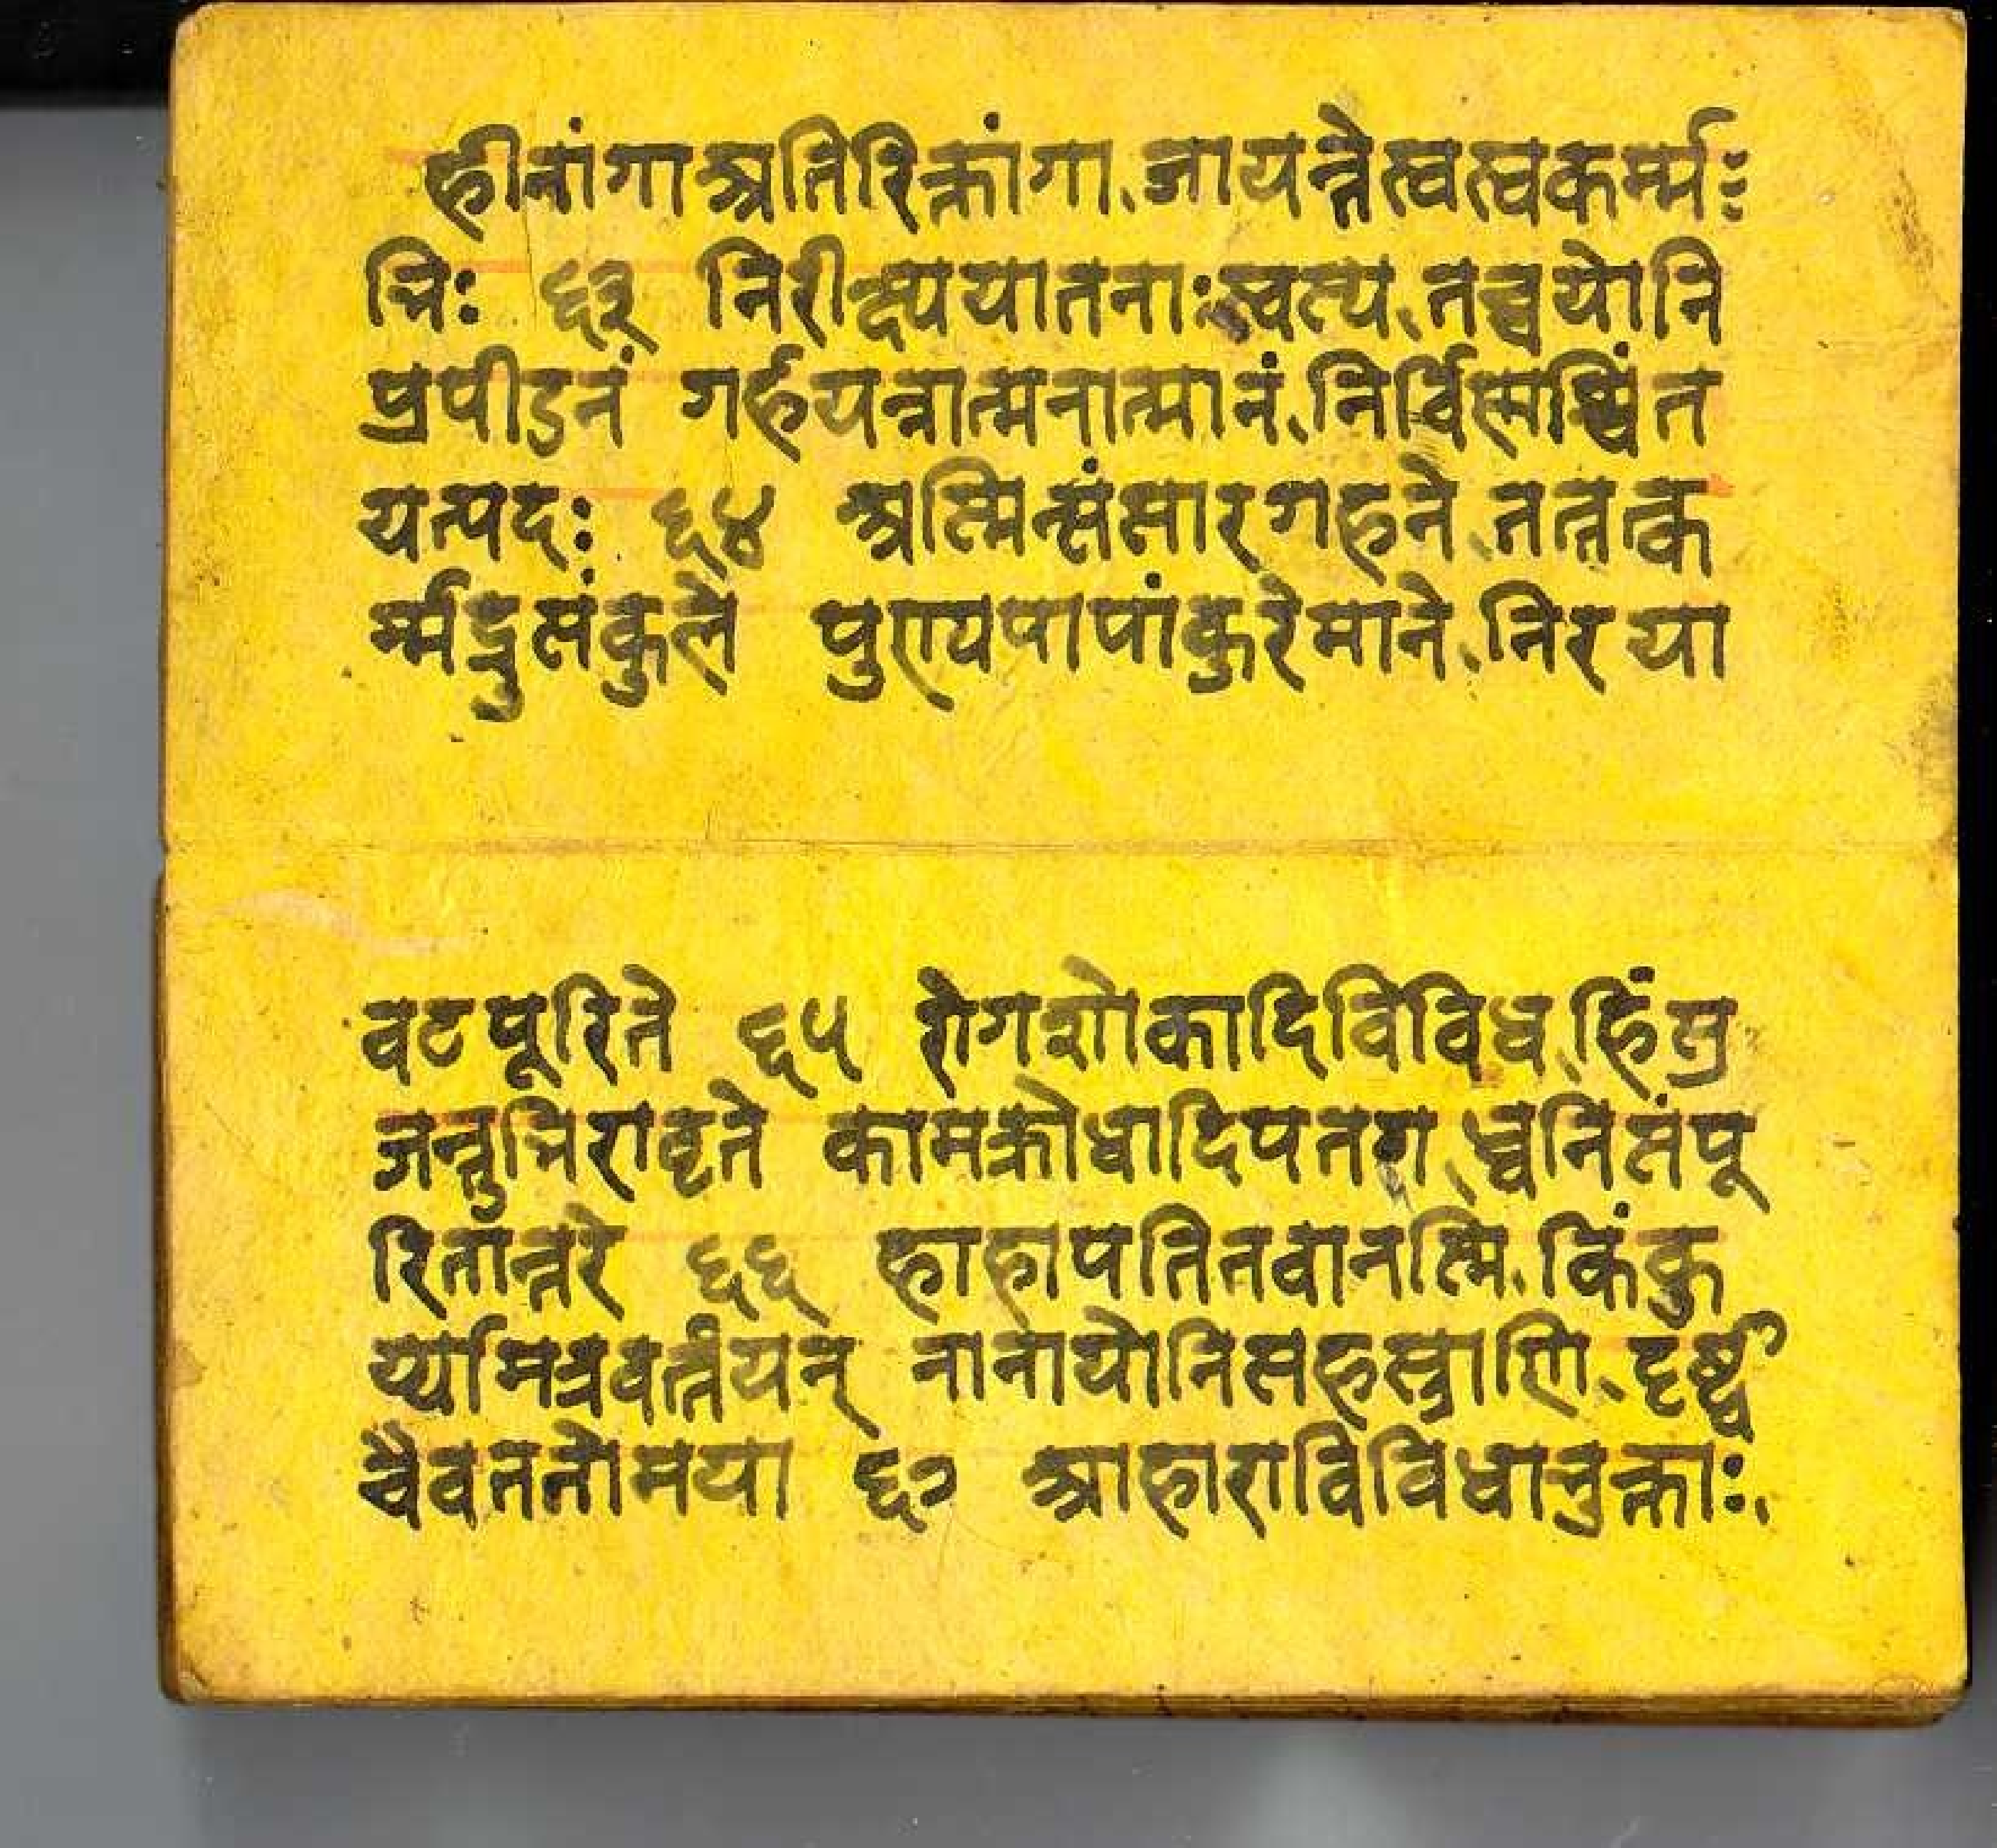 हीनांगा अतिरिक्तांगा जायन्ते स्वस्वकर्म्म
भिः ६३ निरीक्ष्य यातनाः स्वस्य तच्च योनि
प्रपीडनं गर्हयन्नात्मनात्मानं निर्विस्मश्चिंत
यत्पदः ६४ अस्मिन्संसारगहने तत्तत्क
र्म्मद्रुसंकुले पुण्यपापांकुरेमाने निरया
वटपूरिते ६५ रोगशोकादिविविध हिंस्र
जन्तुभिरावृते कामक्रोधादिपतग ध्वनिसंपू
रितांन्तरे ६६ हाहा पतितवानस्मि किंकु
र्य्यामत्रवर्त्तयन् नानायोनिसहस्राणि दृष्ट्वा
चैव ततो मया ६७ आहारा विविधा भुक्ताः